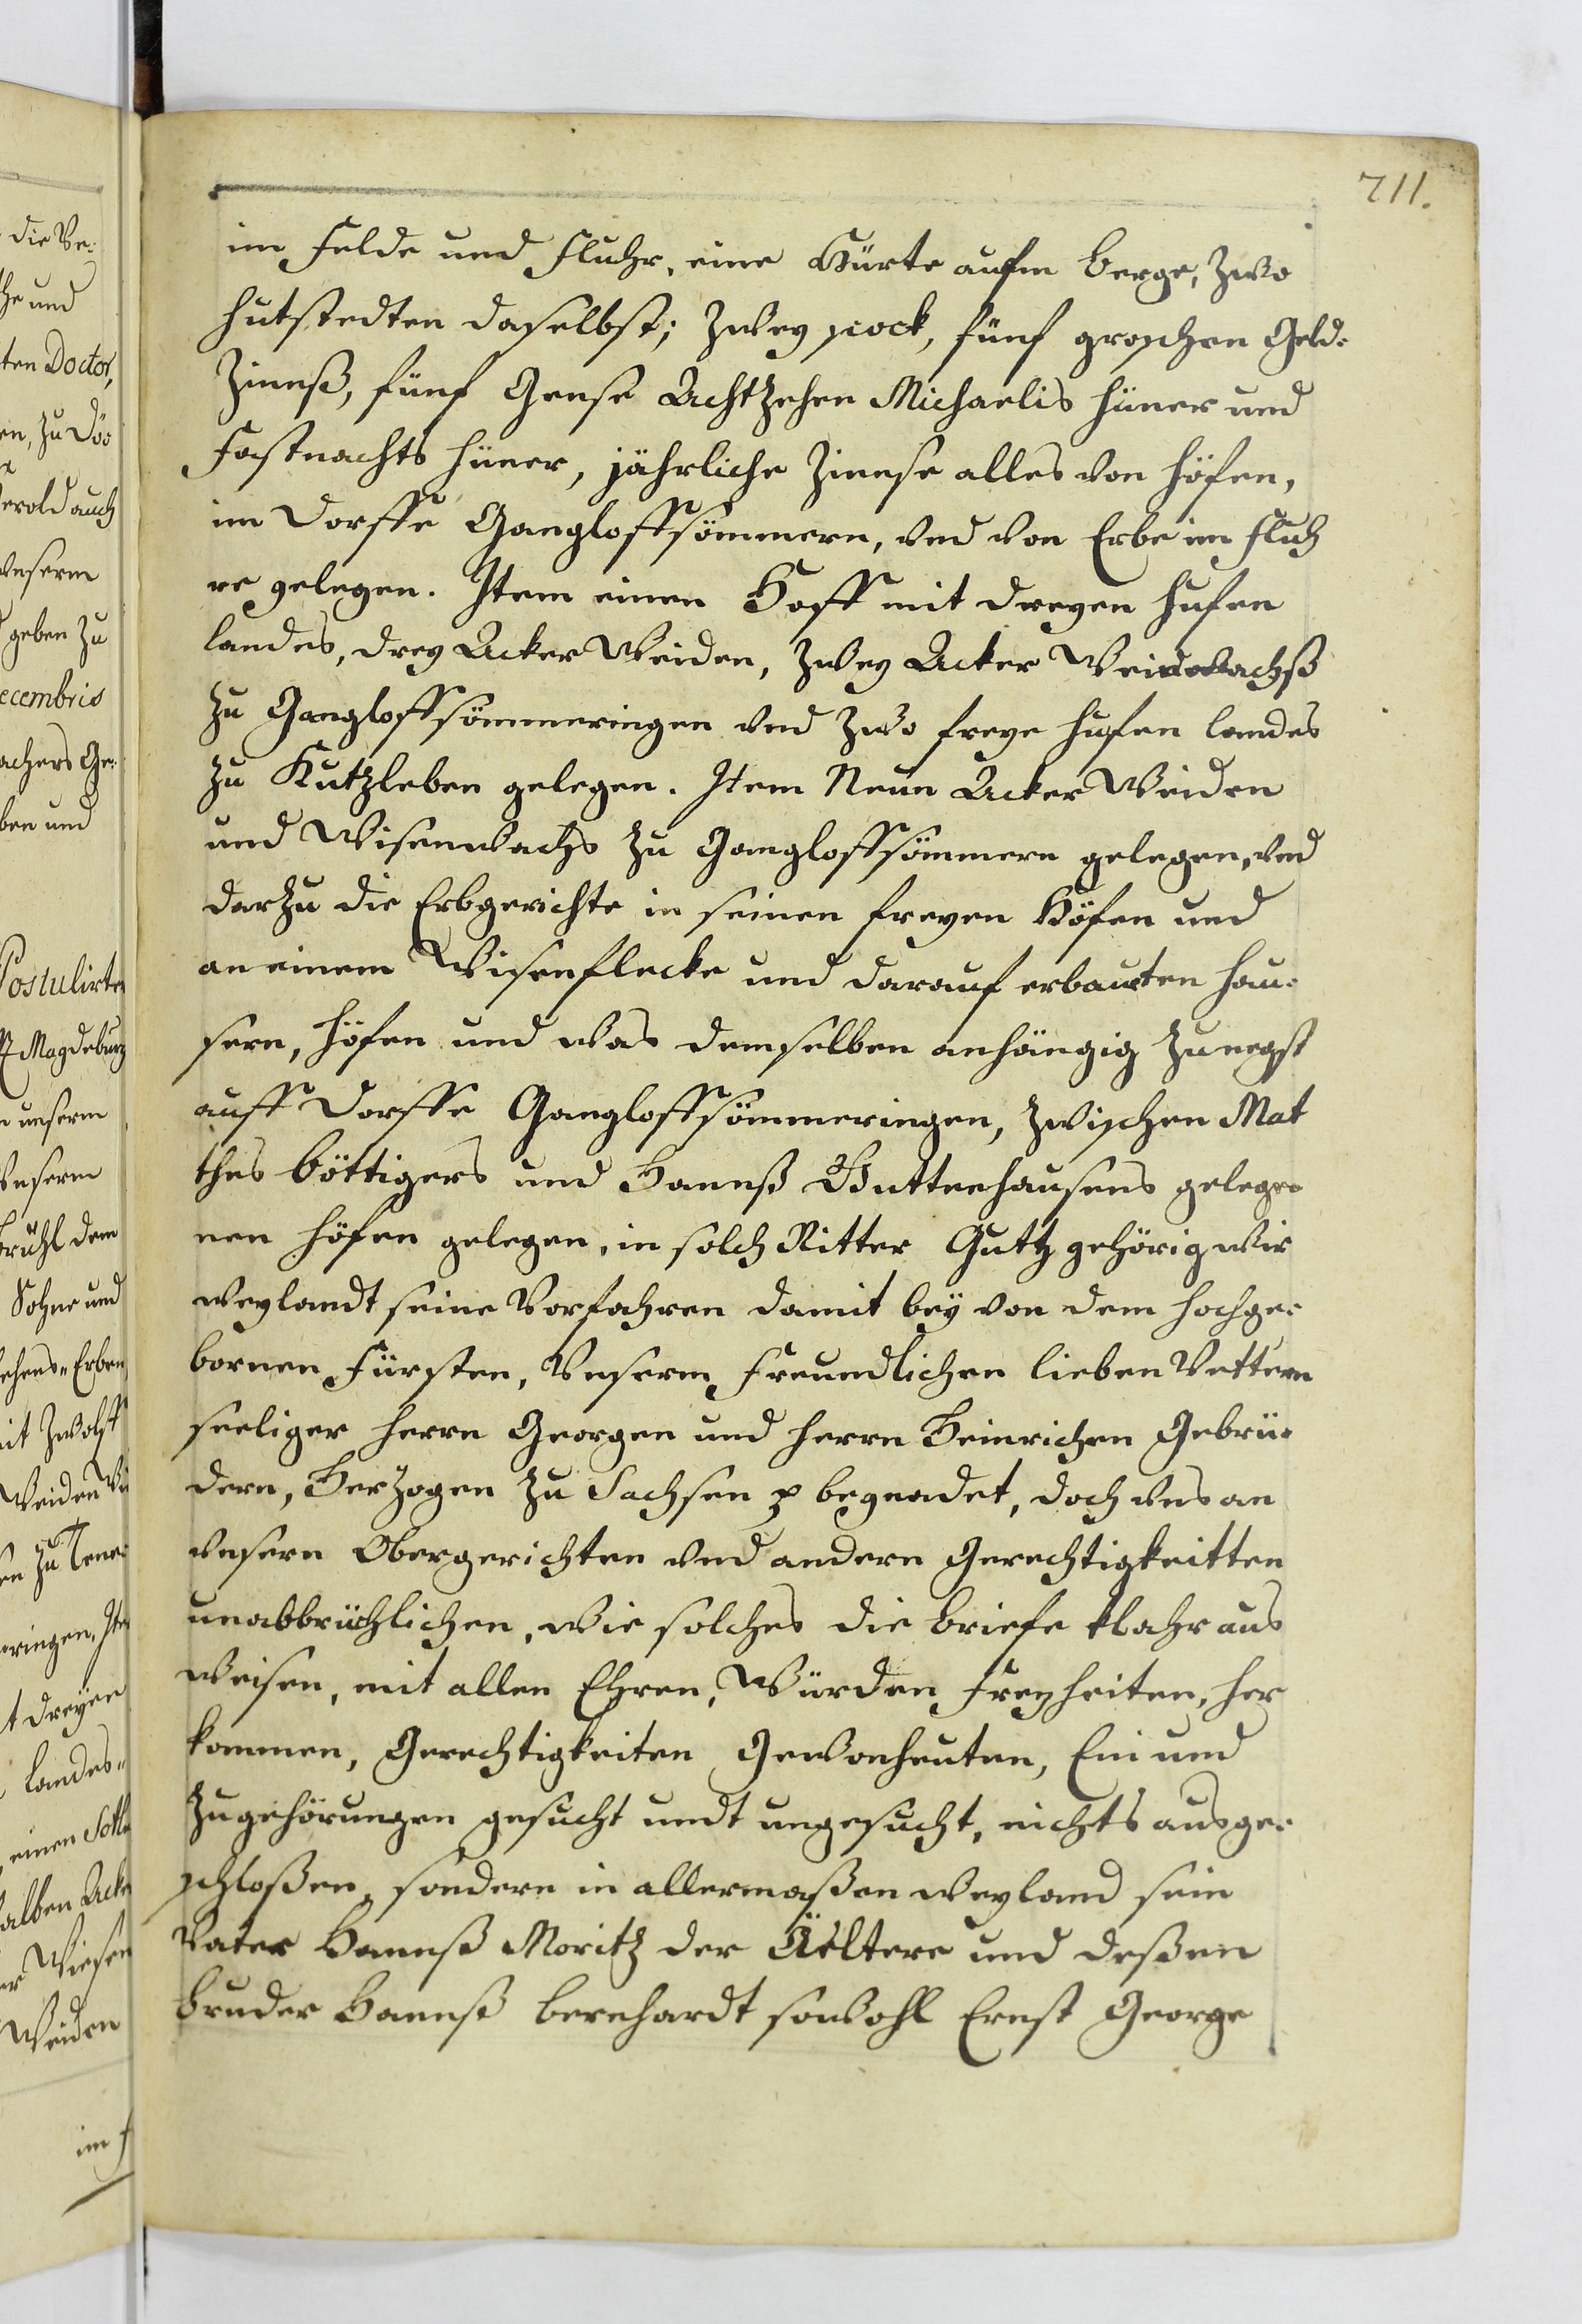 711.
im Felde und Fluhr, eine Hürte aufm Berge, zwo
Hutstedten daselbst; zwey ßock, fünf groschen Geld-
Zinnß, fünf Gense Achtzehen Michaelis Hüner und
Fastnachts Hüner, jährliche Zinnse alles von Höfen,
im Dorffe Gangloffsömmern, vnd von Erbe im Fluh
re gelegen. Item einen Hoff mit dreyen Hufen
Landes, drey Acker Weiden, zwey Acker Weidewachß
zu Gangloffsömmeringen vnd zwo freye Hufen Landes
zu Kutzleben gelegen. Item Neun Acker Weiden
und Wisenwachs zu Gangloffsömmern gelegen, vnd
darzu die Erbgerichte in seinen freyen Höfen und
an einem Wisenflecke und darauf erbauten Heu-
sern, Höfen und was demselben anhängig zunegst
auff Dorffe Gangloffsömmeringen, zwischen Mat
thes Böttigers und Hannß Guttenhausens gelege-
nen Höfen gelegen, in solch Ritter Guth gehörig wie
weylandt seine Vorfahren damit bey von dem Hochge-
bornen Fürsten, Vnserm Freundlichen lieben Vettern
seeliger Herrn Georgen und Herrn Heinrichen Gebrü-
dern, Herzogen zu Sachsen p begnadet, doch vns an
vnsern Obergerichten vnd andern Gerechtigkeitten
unabbrüchlichen, wie solches die Briefe klahr aus
weisen, mit allen Ehren, Würden, Freyheiten, Her
kommen, Gerechtigkeiten Gewonheuten, Ein und
Zugehörungen gesucht undt ungesucht, nichts ausge-
schloßen, sondern in allermaßen weyland sein
Vater Hannß Moritz der Äeltere und deßen
Bruder Hannß Bernhardt sowohl Ernst George